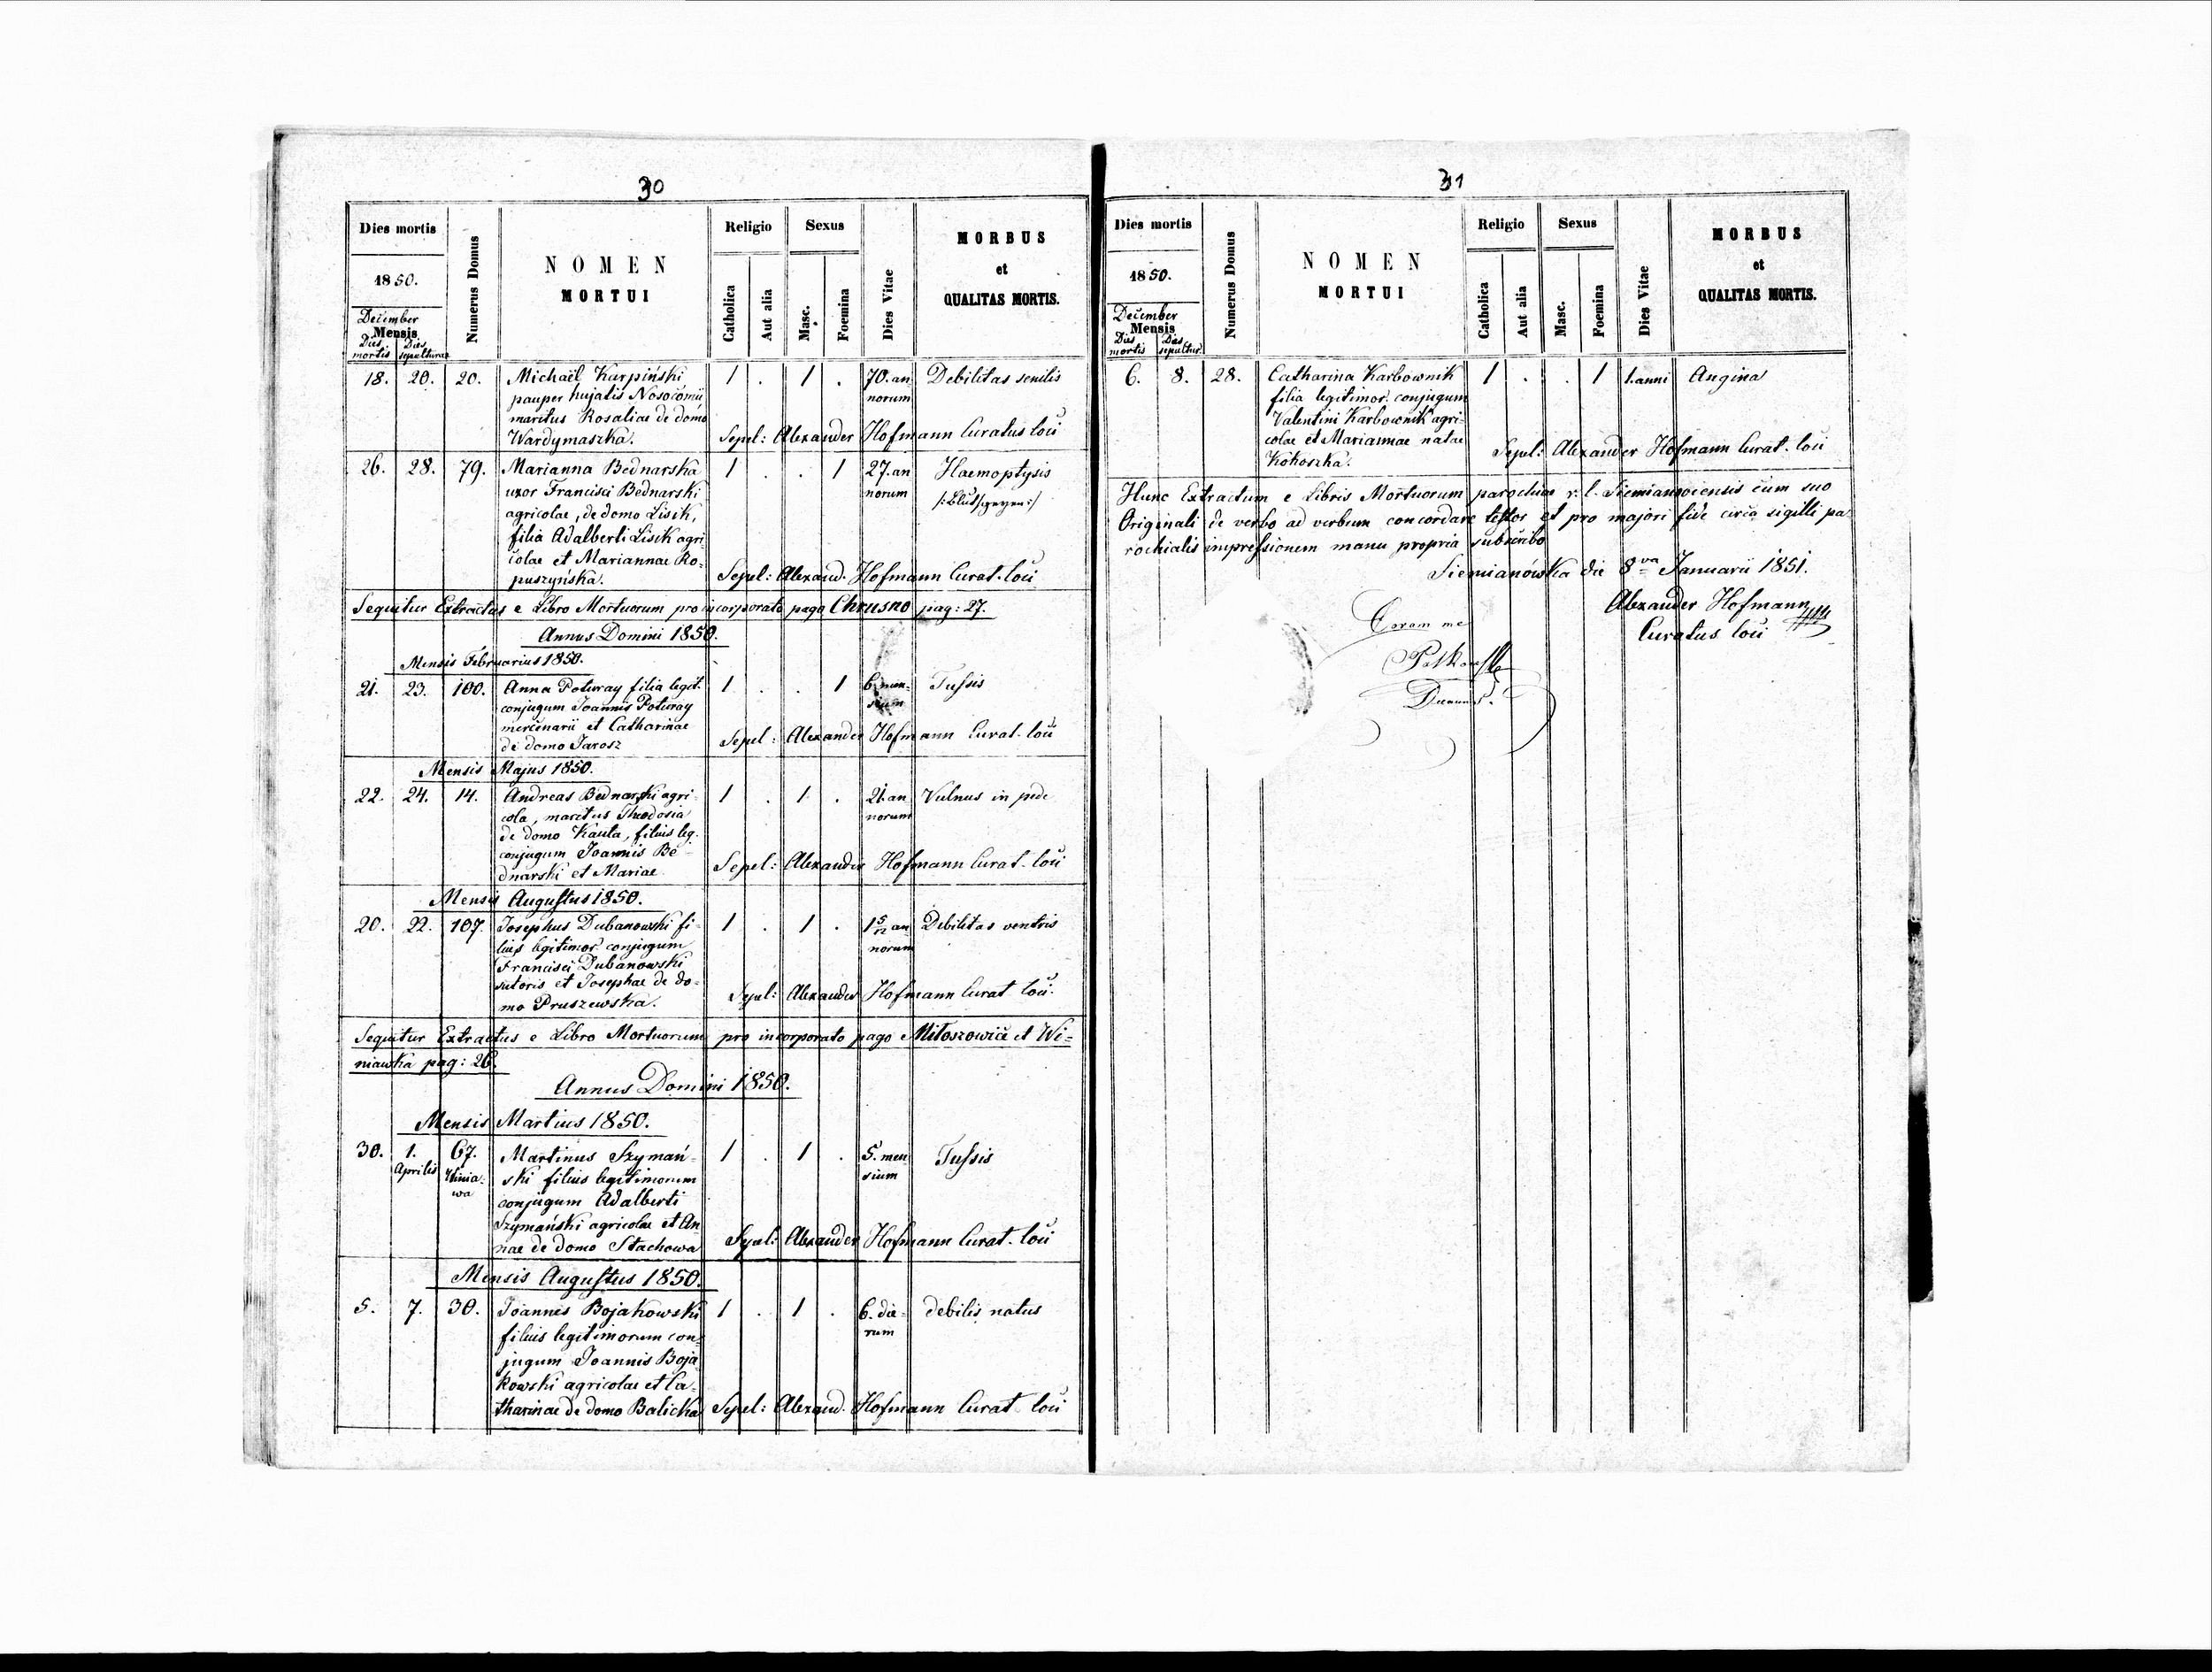 30
Dies mortis
1850.
December
Mensis
Dies mortis
Dies sepulturae
Numerus Domus
NOMEN
MORTUI
Religio
Catholica
Aut alia
Sexus
Masc.
Foemina
Dies Vitae
MORBUS
et
QUALITAS MORTIS.
18. 20. 20. Michaël Karpiński 1 . 1 . 70. an Debilitas senilis
pauper hujatis Nosocomii norum
maritus Rosaliae de domo
Wardymaszka. Sepel: Alexander Hofmann Curatus loci
26. 28. 79. Marianna Bednarska 1 . . 1 27. an Haemoptysis
uxor Francisci Bednarski norum
agricolae, de domo Lisik,
filia Adalberti Lisik agri
colae et Mariannae Ro=
puszyńska. Sepel: Alexand. Hofmann Curat. loci
Sequitur Extractus e Libro Mortuorum pro incorporato pago Chrusno pag: 27.
Annus Domini 1850.
Mensis Februarius 1850.
21. 23. 100. Anna Poturay filia legit. 1 . . 1 6 men= Tussis
conjugum Joannis Poturay sium
mercenarii et Catharinae
de domo Jarosz Sepel: Alexander Hofmann Curat. loci
Mensis Majus 1850.
22. 24. 14. Andreas Bednarski agri= 1 . 1 . 21. an Vulnus in pede
cola, maritus Theodosia norum
de domo Kaula, filius leg.
conjugum Joannis Be=
dnarski et Mariae Sepel: Alexander Hofmann Curat. loci
Mensis Augustus 1850.
20. 22. 107. Josephus Dubanowski fi= 1 . 1 . 1 5/12 an Debilitas ventris
lius legitimor. conjugum norum
Francisci Dubanowski
sutoris et Josephae de do=
mo Pruszewska. Sepel: Alexander Hofmann Curat. loci.
Sequitur Extractus e Libro Mortuorum pro incorporato pago Mitoszowice et Wi=
niawka pag: 26.
Annus Domini 1850.
Mensis Martius 1850.
30. 1. 67. Martinus Szymań= 1 . 1 . 5. men Tussis
Aprilis Winia= ski filius legitimorum sium
wa conjugum Adalberti
Szymański agricolae et An
nae de domo Stachowa Sepel: Alexander Hofmann Curat. loci
Mensis Augustus 1850.
5. 7. 30. Joannes Bojakowski 1 . 1 . 6. die= debilis natus
filius legitimorum con= rum
jugum Joannis Boja
kowski agricolae et Ca=
tharinae de domo Balicka Sepel: Alexand. Hofmann Curat. loci
31
Dies mortis
1850.
December
Mensis
Dies mortis
Dies sepultur.
Numerus Domus
NOMEN
MORTUI
Religio
Catholica
Aut alia
Sexus
Masc.
Foemina
Dies Vitae
MORBUS
et
QUALITAS MORTIS.
6. 8. 28. Catharina Karbownik 1 . . 1 1. anni Angina
filia legitimor. conjugum
Valentini Karbownik agri=
colae et Mariannae natae
Kokoszka. Sepel: Alexander Hofmann Curat. loci
Hunc Extractum e Libris Mortuorum parochiae r. l. Siemianoviensis cum suo
Originali de verbo ad verbum concordare testor et pro majori fide circa sigilli pa
rochialis impressionem manu propria subscribo
Siemianówka die 8va Januarii 1851.
Alexander Hofmann
Curatus loci
Coram me